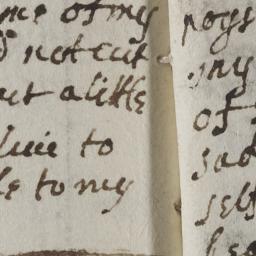 me of my
not cut
ut a little
luie to
le to my
poys
my
of
sad
self